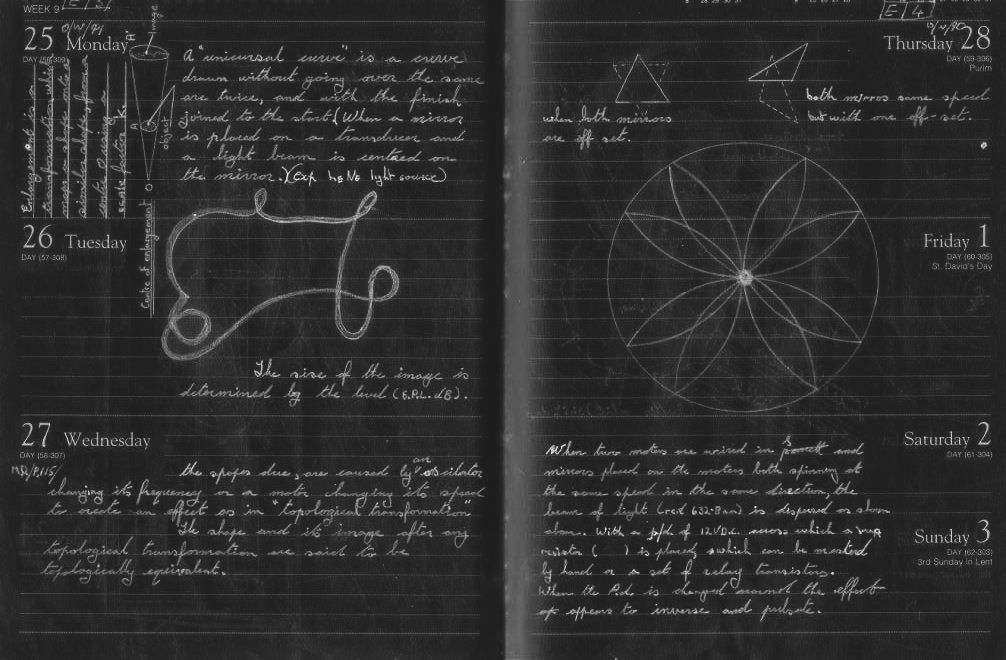 WEEK 9
E/3/
25 Monday
DAY (56-309)
Image
A'
A
object
O
Enlargement is a
transformation which
maps a shape onto a
similar shape, from a
centre O using a
scale factor K.
Centre of enlargement
A "unicursal curve" is a curve
drawn without going over the same
arc twice, and with the finish
joined to the start (When a mirror
is placed on a transducer and
a light beam is centred on
the mirror.) (Exp. HeNe light source)
26 Tuesday
DAY (57-308)
The size of the image is
determined by the level (S.P.L. dB).
27 Wednesday
DAY (58-307)
the shapes, are caused by an oscilator
changing its frequency or a motor changing its speed
to create an effect as in "topological transformation"
The shape and its image after any
topological transformation are said to be
topologically equivalent.
E/4/
Thursday 28
DAY (59-306)
Purim
when both mirrors
are off set.
both mirrors same speed
but with one off-set.
Friday 1
DAY (60-305)
St. David's Day
Saturday 2
DAY (61-304)
When two motors are wired in and
mirrors placed on the motors both spinning at
the same speed in the same direction, the
beam of light (red 632-8nm) is dispersed as shown
above. With a p/d of 12V D.C. across which a
resistor ( ) is placed which can be
by hand or a set of relay transistors.
When the P.d. is changed around the effect
appears to inverse and pulsate.
Sunday 3
DAY (62-303)
3rd Sunday in Lent